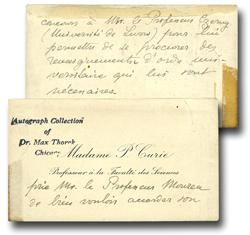 concours à Mr. le Professeur
(Université de            ) pour lui
permettre de se procurer des
renseignements d'ordre uni-
versitaire qui lui sont
nécessaires
Autograph Collection
of
Dr. Max Thorek
Chicago
Madame P. Curie
Professeur à la Faculté des Sciences
prie Mr. le Professeur Moureu
de bien vouloir accorder son